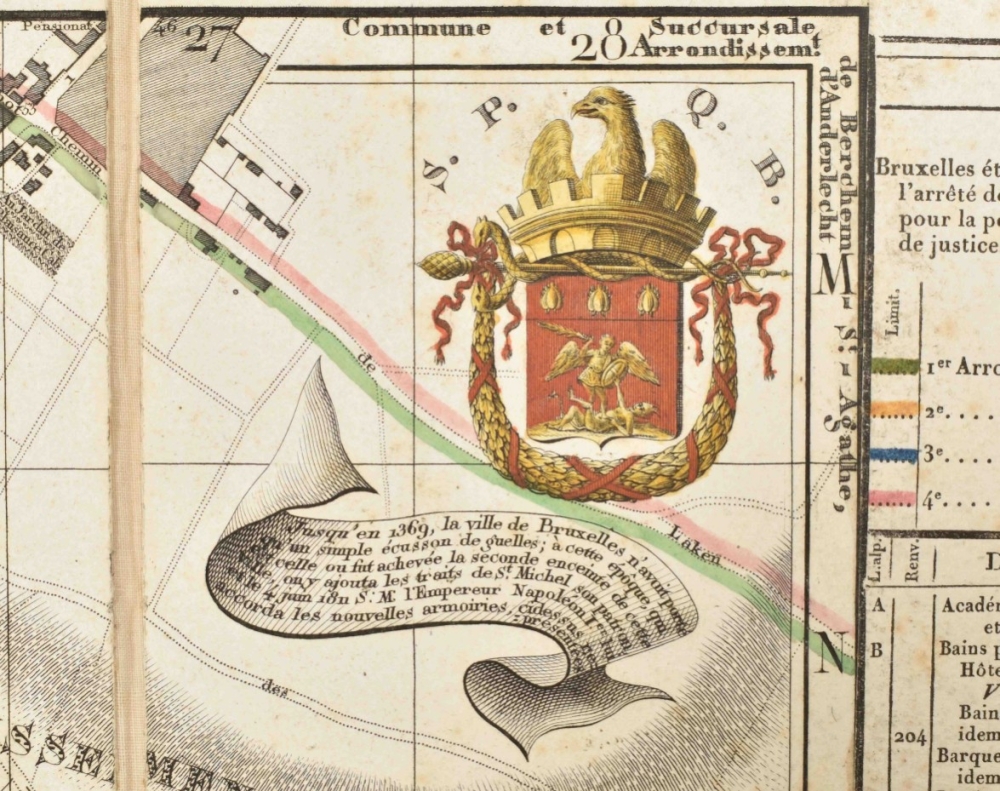 Pensionat
46
27
Commune et Succursale
28 Arrondissemt.
de Berchem
d'Anderlecht
M
St. Agathe,
S. P. Q. B.
Chemin
de
Laken
N
Jusqu'en 1369, la ville de Bruxelles n'avait porté
qu'un simple écusson de guelles; à cette epôque, qui
celle ou fut achevée la seconde enceinte de cette
on y ajouta les traits de St. Michel son patron
le 4 juin 1811 S. M. l'Empereur Napoléon Ier.
accorda les nouvelles armoiries, cidessus
des
Bruxelles ét
l'arrêté d
pour la p
de justice
Limit.
1er Arro
2e....
3e....
4e....
L.alp.
Renv.
A
Acadé
et
B
Bains p
Hôte
Bain
idem
204
Barque
idem